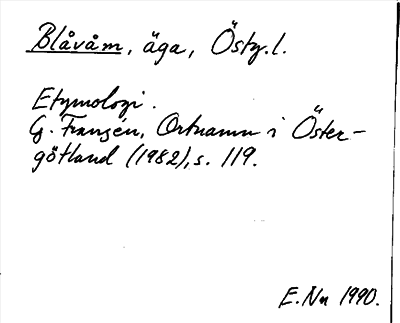 Blåvåm, äga, Östg.l.
Etymologi.
G. Franzén, Ortnamn i Öster-
götland (1982), s. 119.
E. Nn 1990.